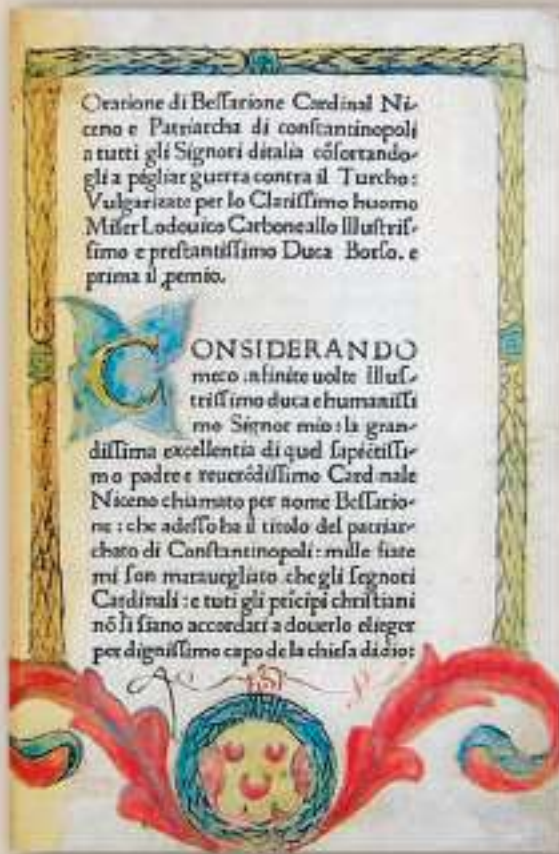 Oratione di Beſſarione Cardinal Ni-
ceno e Patriarcha di conſtantinopoli
a tutti gli Signori ditalia cōfortando-
gli a pigliar guerra contra il Turcho:
Vulgarizate per lo Clariſſimo huomo
Miſer Lodouico Carbone allo Illuſtriſ-
ſimo e preſtantiſſimo Duca Borſo. e
prima il ꝓemio.
CONSIDERANDO
meco infinite uolte Illuſ-
triſſimo duca e humaniſſi
mo Signor mio: la gran-
diſſima excellentia di quel ſapiētiſſi-
mo padre e reuerēdiſſimo Cardinale
Niceno chiamato per nome Beſſario-
ne: che adeſſo ha il titolo del patriar-
chato di Conſtantinopoli: mille fiate
mi ſon marauegliato che gli ſegnori
Cardinali: e tuti gli prīcipi chriſtiani
nō ſi ſiano accordati a douerlo elieger
per digniſſimo capo de la chieſa di dio: